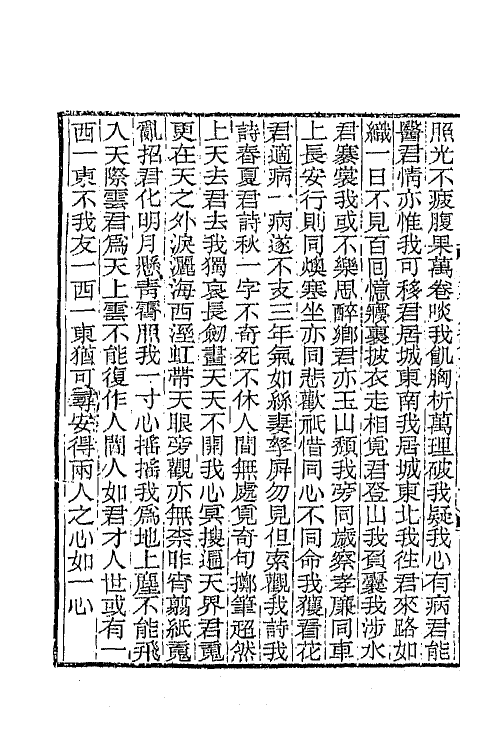 照光不疲腹果萬卷啖我飢胸析萬理破我疑我心有病君能
醫君情亦惟我可移君居城東南我居城東北我往君來路如
織一日不見百回憶癡裏披衣走相覓君登山我負囊我涉水
君褰裳我或不樂思醉鄉君亦玉山頹我旁同歲察孝廉同車
上長安行則同燠寒坐亦同悲歡祇惜同心不同命我獲看花
君適病一病遂不支三年氣如絲妻孥屏勿見但索觀我詩我
詩春夏君詩秋一字不奇死不休人間無處覓奇句擲筆超然
上天去君去我獨哀長劒畫天天不開我心冥搜遍天界君䰟
更在天之外淚灑海西溼虹帶天眼旁觀亦無柰昨宵翦紙䰟
亂招君化明月懸靑霄照我一寸心摇摇我爲地上塵不能飛
入天際雲君爲天上雲不能復作人閒人如君才人世或有一
西一東不我友一西一東猶可尋安得兩人之心如一心